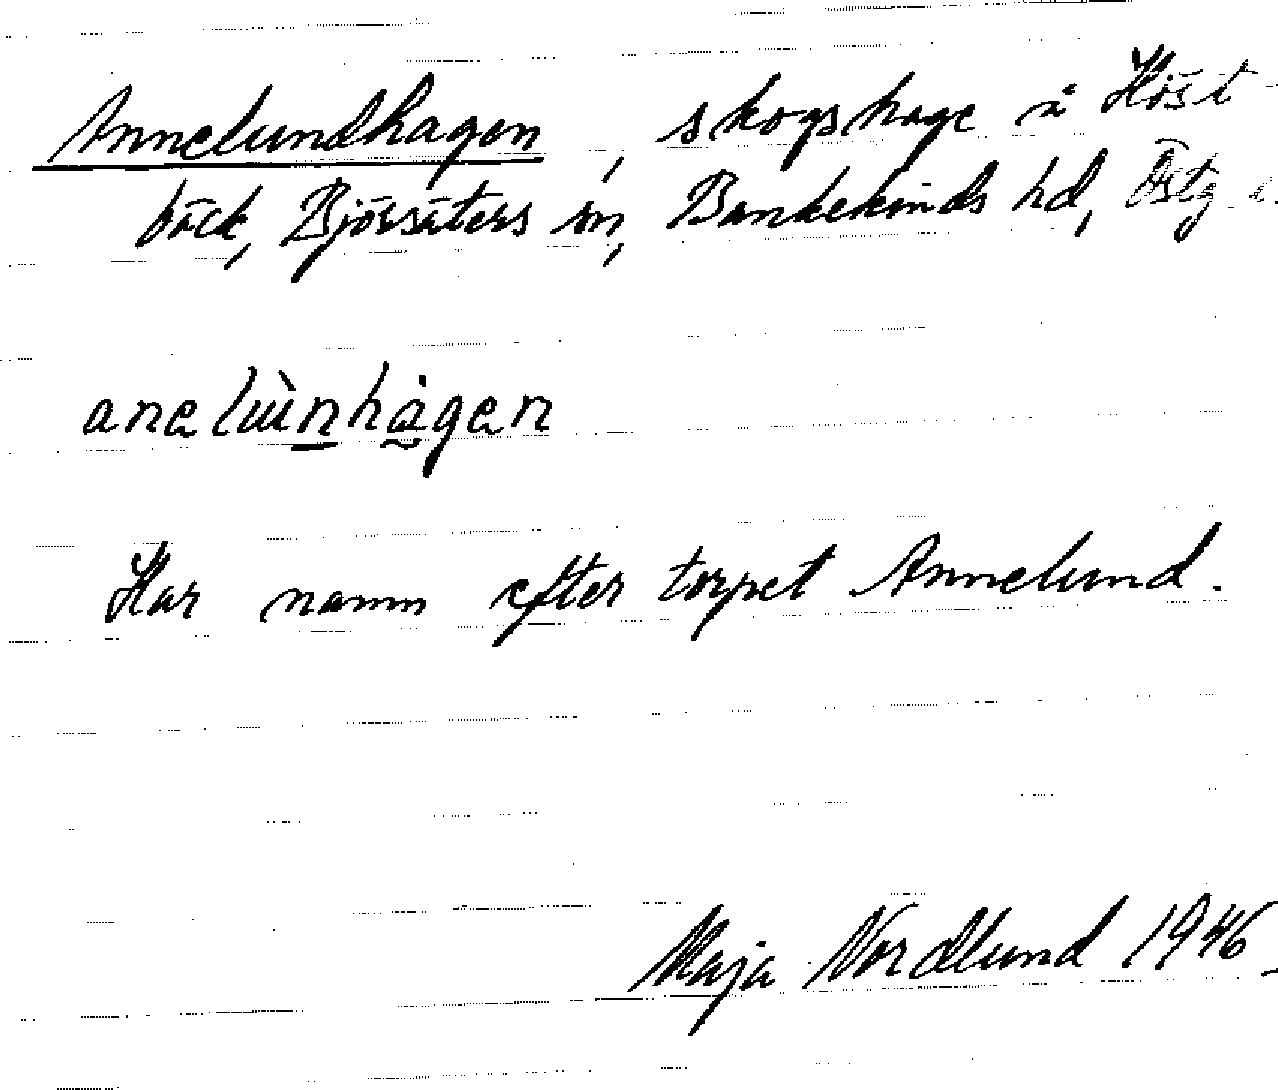 Annelundhagen, skogshage å Höst-
bäck, Björsäters sn, Bankekinds hd, Östg
Har namn efter torpet Annelund.
Maja Nordlund 1946